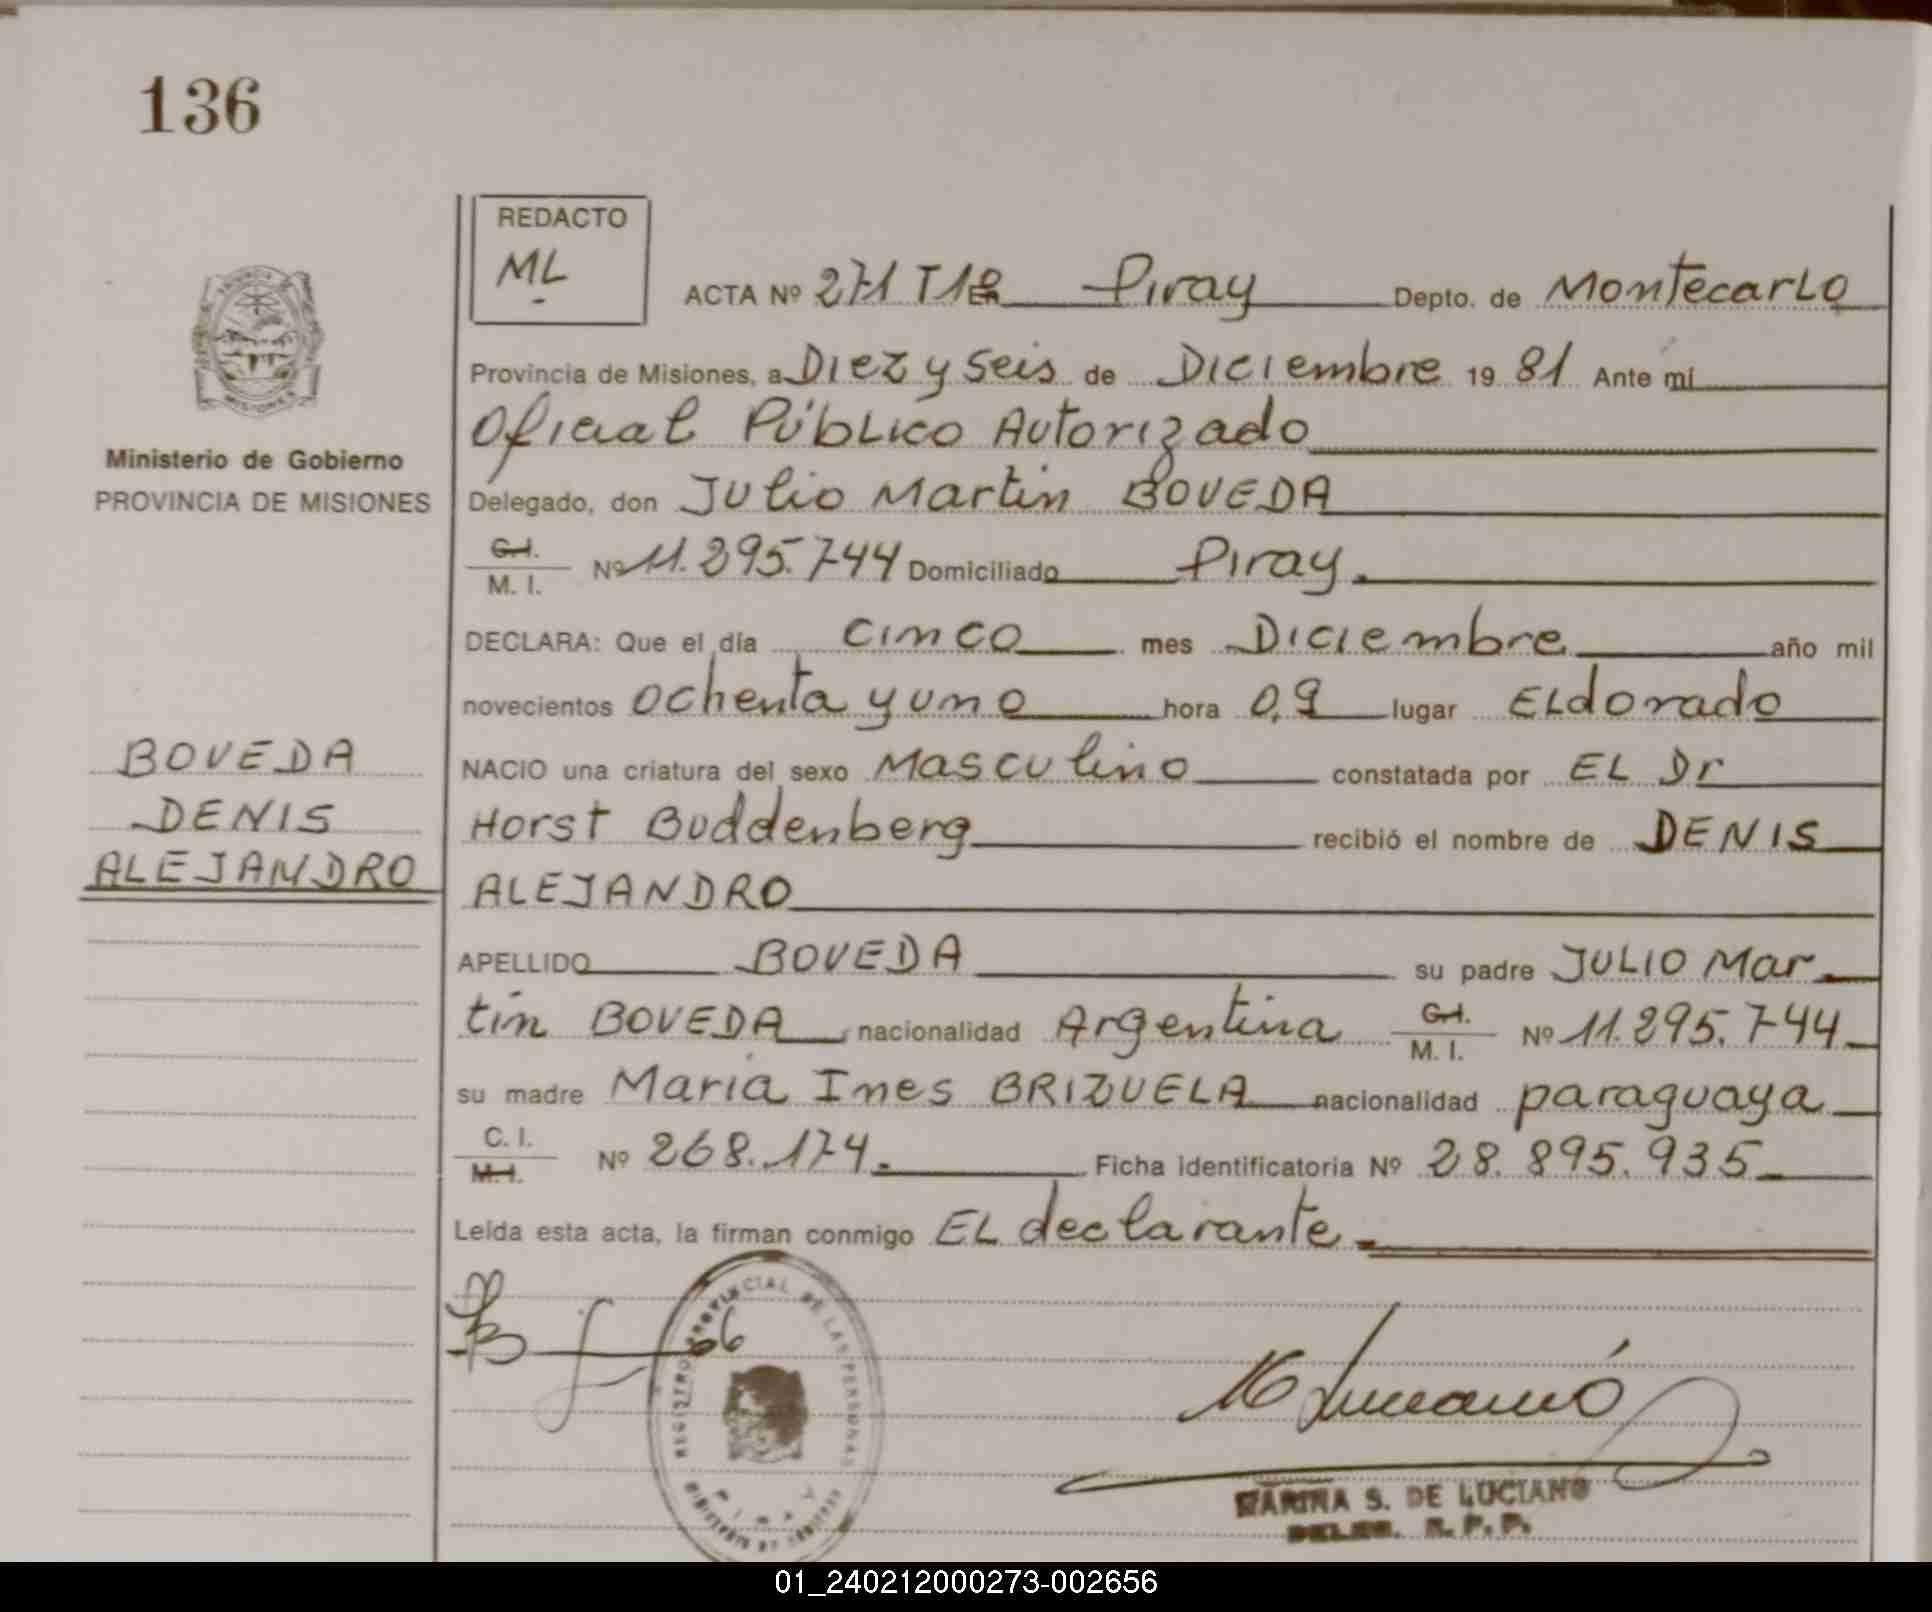 136
REDACTO
ML
ACTA Nº 271 T1º Piray Depto. de Montecarlo
Provincia de Misiones, a Diez y seis de Diciembre 19 81 Ante mí
Oficial Público Autorizado
Ministerio de Gobierno
PROVINCIA DE MISIONES
Delegado, don Julio Martin BOVEDA
C.I.
M. I. Nº 11.295.744 Domiciliado Piray.
DECLARA: Que el día cinco mes Diciembre año mil
novecientos ochenta y uno hora 0,9 lugar ELdorado
BOVEDA
DENIS
ALEJANDRO
NACIO una criatura del sexo Masculino constatada por EL Dr
Horst Buddenberg recibió el nombre de DENIS
ALEJANDRO
APELLIDO BOVEDA su padre JULIO Mar
tin BOVEDA nacionalidad Argentina C.I. M. I. Nº 11.295.744
su madre Maria Ines BRIZUELA nacionalidad paraguaya
C. I.
M.I. Nº 268.174. Ficha identificatoria Nº 28.895.935
Leída esta acta, la firman conmigo EL declarante.
REGISTRO PROVINCIAL DE LAS PERSONAS
MARINA S. DE LUCIANO
R. P. P.
01_240212000273-002656